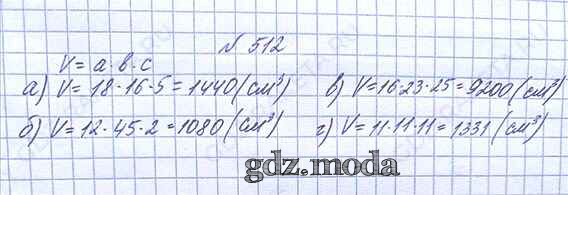 № 512
V = a · b · c
а) V = 18 · 16 · 5 = 1440 (см³)
б) V = 12 · 45 · 2 = 1080 (см³)
в) V = 16 · 23 · 25 = 9200 (см³)
г) V = 11 · 11 · 11 = 1331 (см³)
gdz.moda